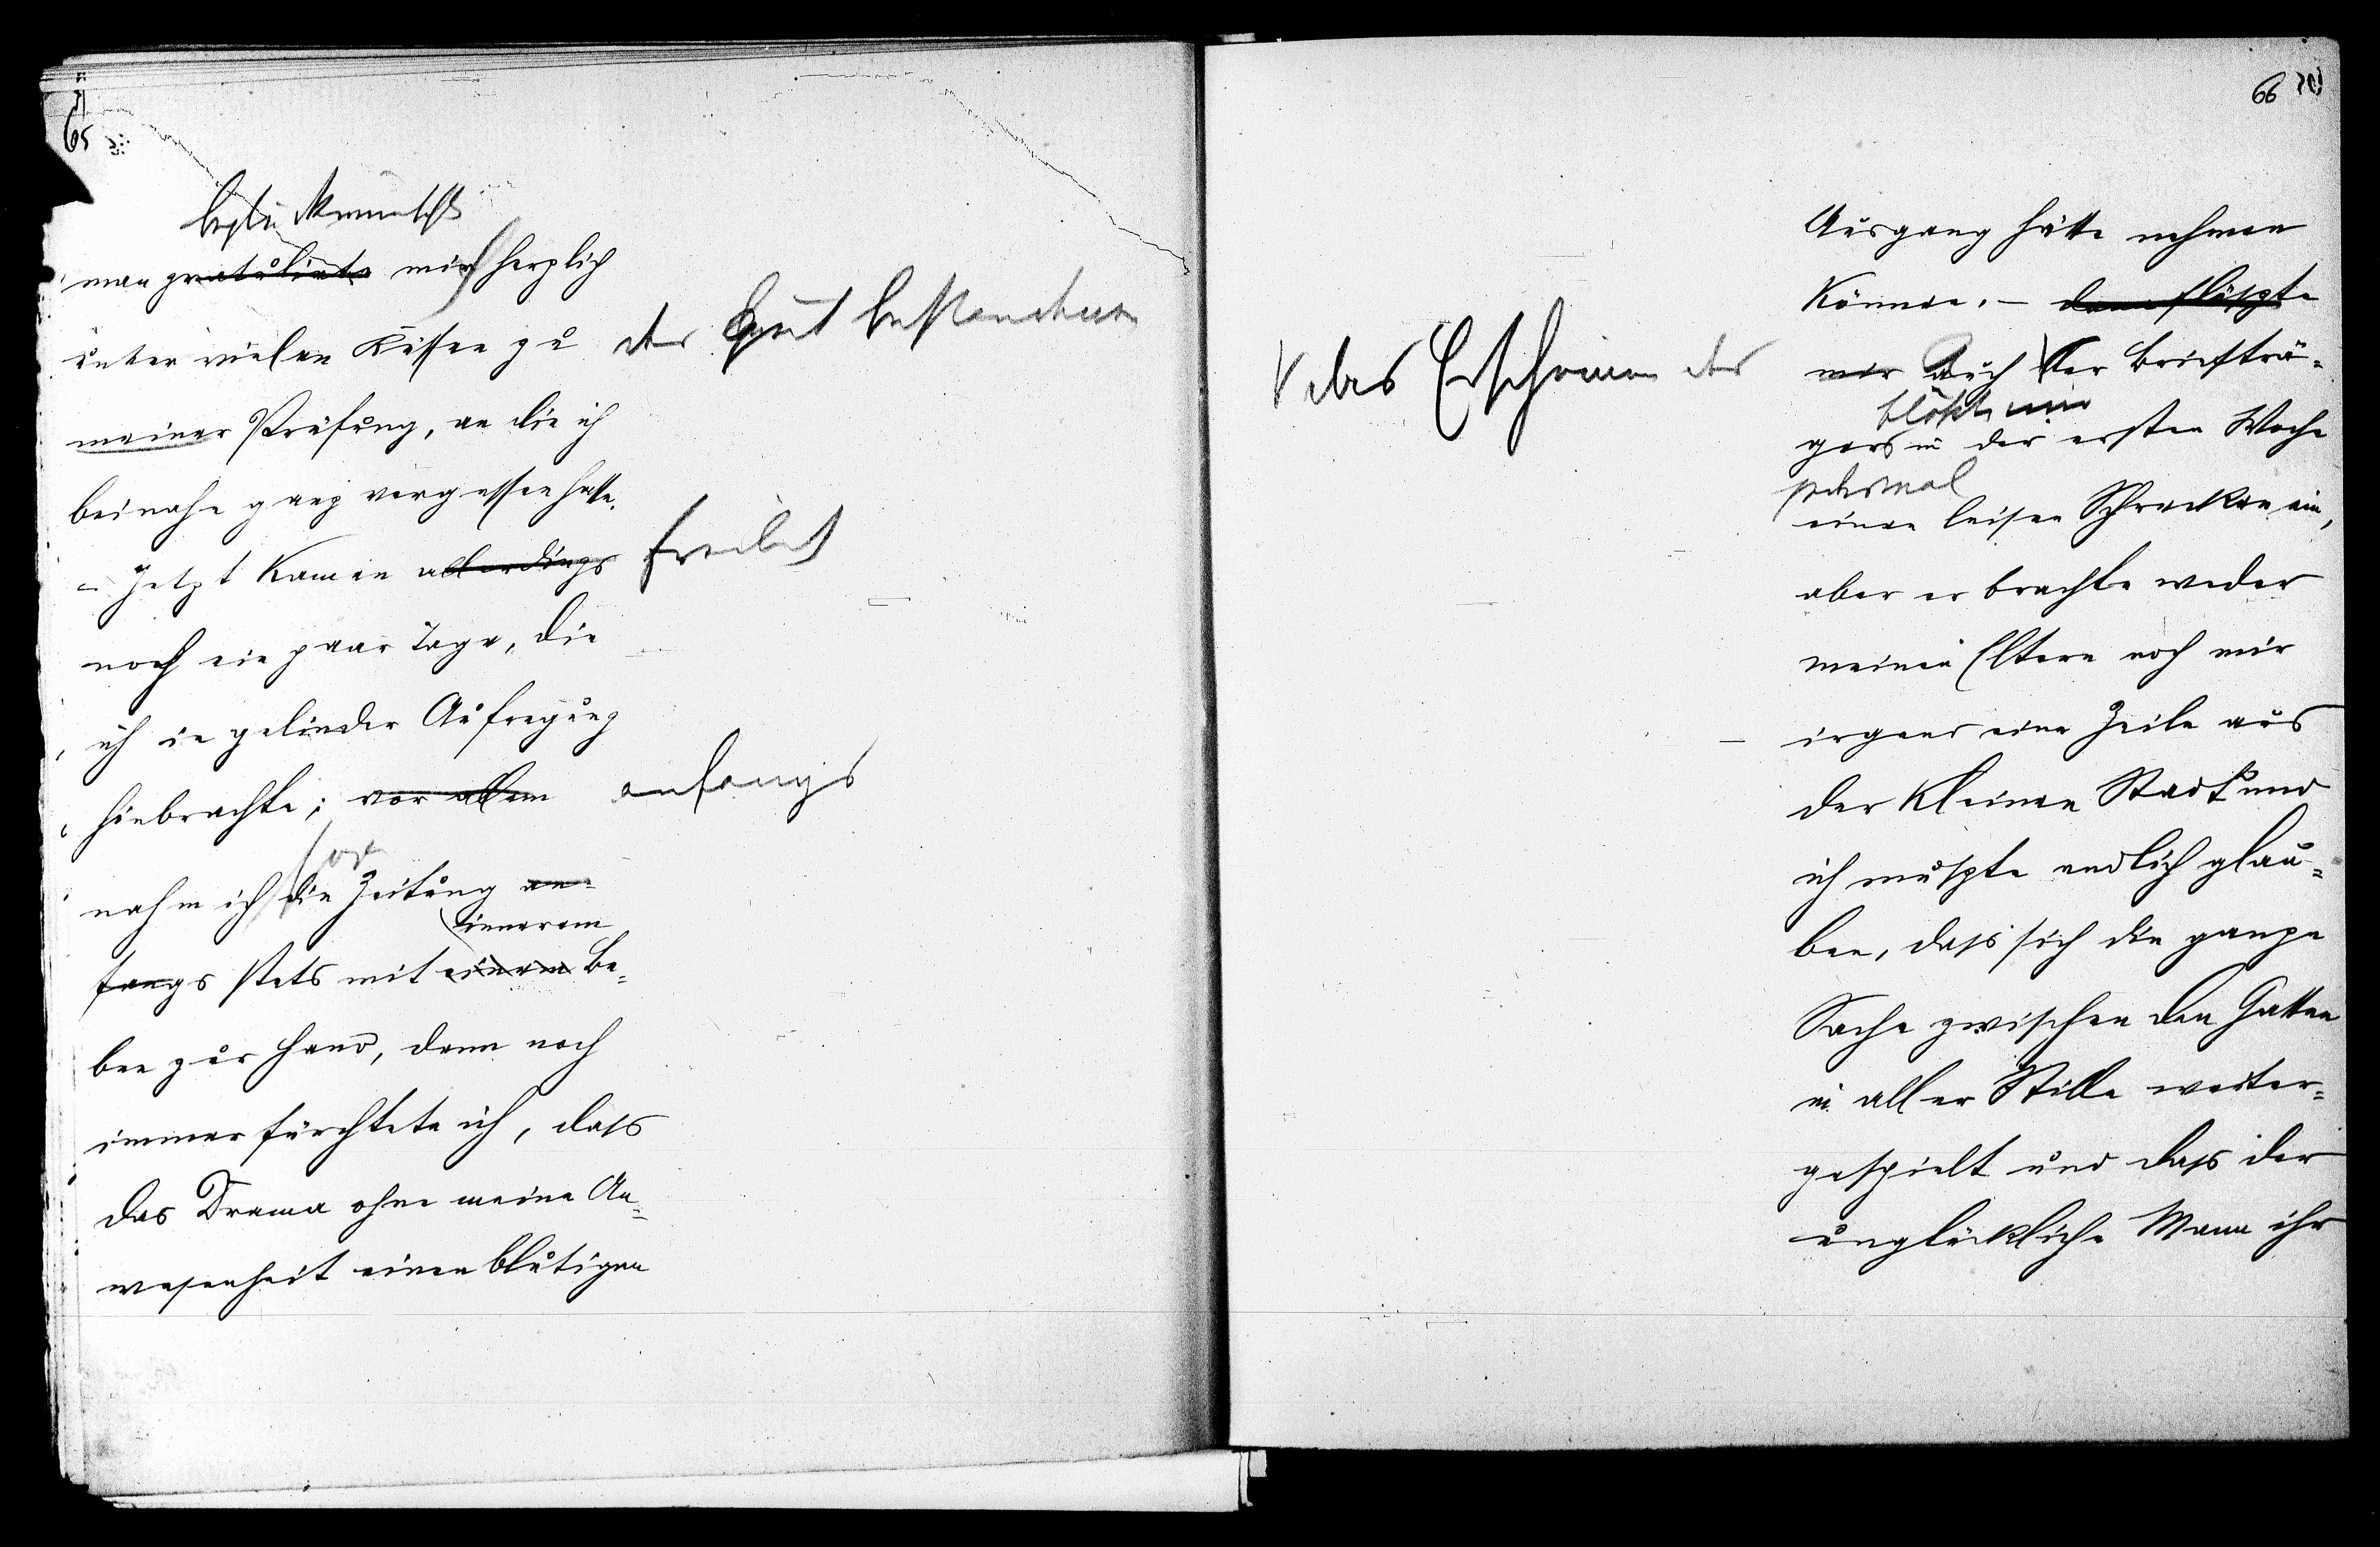 65
beglückwünschte
man gratulirte mich herzlich
unter vielen Küssen zu der gut bestandenen
meiner Prüfung, an die ich
beinahe ganz vergessen hatte.
– Jetzt kamen allerdings freilich
noch ein paar Tage, die
ich in gelinder Aufregung
hinbrachte; vor allem anfangs
nahm ich die Zeitung an-
innerem
fangs stets mit einem Be-
ben zur Hand, denn noch
immer fürchtete ich, dass
das Drama ohne meine An-
wesenheit einen blutigen
66
Ausgang hätte nehmen
können. – dann flößte
das Erscheinen des
mir Auch der Briefträ-
flößte mir
gers in der ersten Woche
jedesmal
einen leisen Schrecken ein,
aber er brachte weder
meinen Eltern noch mir
irgend eine Zeile aus
der kleinen Stadt und
ich mußte endlich glau-
ben, dass sich die ganze
Sache zwischen den Gatten
in aller Stille weiter-
gespielt und dass der
unglückliche Mann ihr